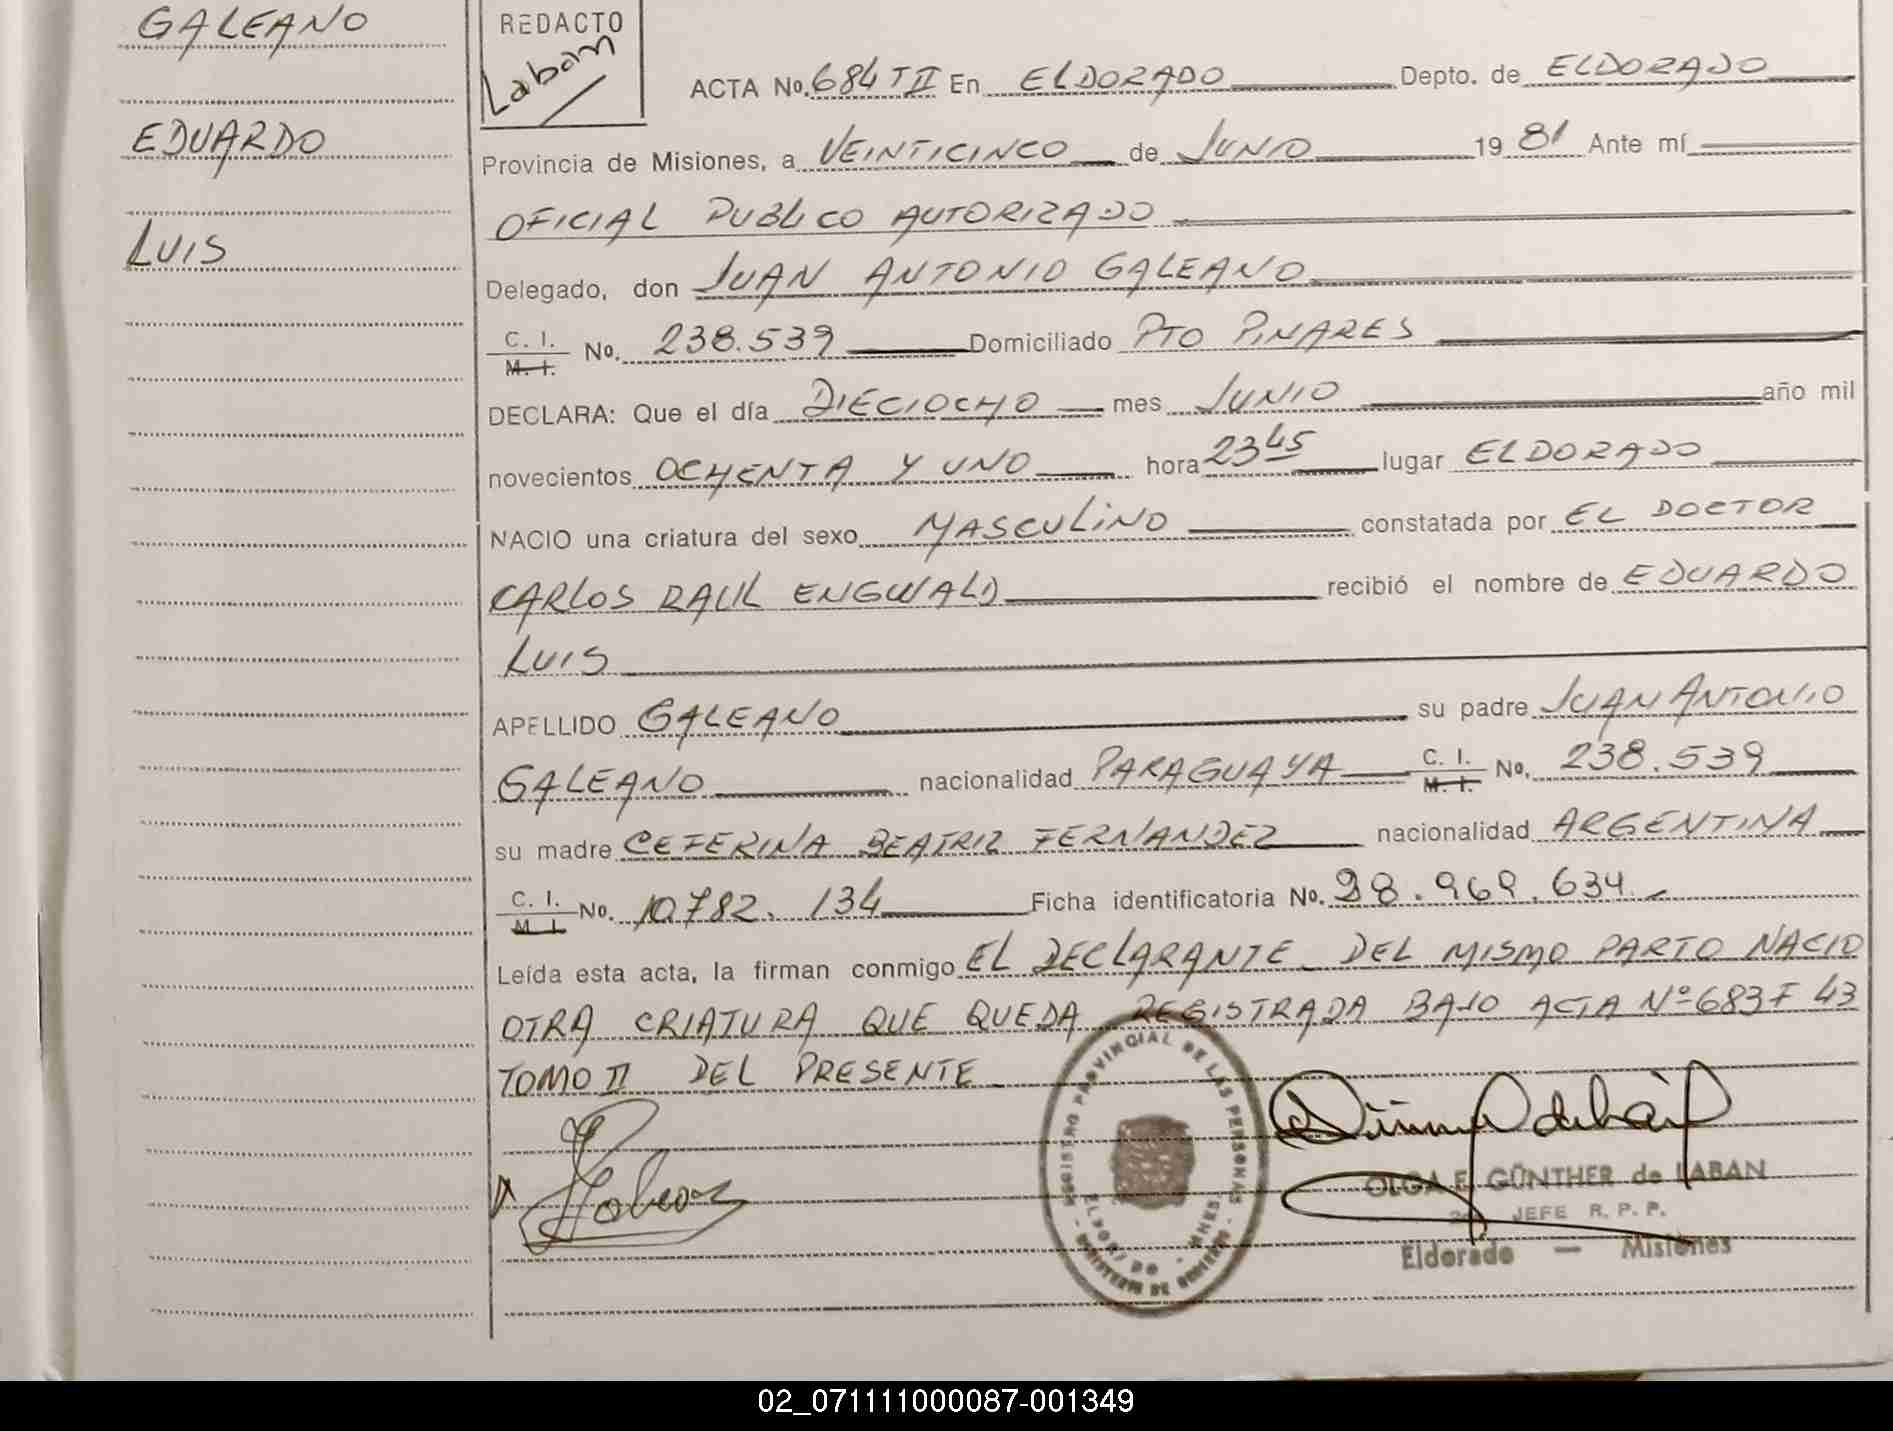 GALEANO
EDUARDO
LUIS
REDACTO
Laban
ACTA No. 684 T II En ELDORADO Depto. de ELDORADO
Provincia de Misiones, a VEINTICINCO de JUNIO 19 81 Ante mí
OFICIAL PUBLICO AUTORIZADO
Delegado, don JUAN ANTONIO GALEANO
C. I. M. I. No. 238.539 Domiciliado PTO PINARES
DECLARA: Que el día DIECIOCHO mes JUNIO año mil
novecientos OCHENTA Y UNO hora 23 45 lugar ELDORADO
NACIO una criatura del sexo MASCULINO constatada por EL DOCTOR
CARLOS RAUL ENGWALD recibió el nombre de EDUARDO
LUIS
APELLIDO GALEANO su padre JUAN ANTONIO
GALEANO nacionalidad PARAGUAYA C. I. M. I. No. 238.539
su madre CEFERINA BEATRIZ FERNANDEZ nacionalidad ARGENTINA
C. I. M. I. No. 10.782.134 Ficha identificatoria No. 28.969.634.-
Leída esta acta, la firman conmigo EL DECLARANTE. DEL MISMO PARTO NACIO
OTRA CRIATURA QUE QUEDA REGISTRADA BAJO ACTA Nº 683 F 43
TOMO II DEL PRESENTE
REGISTRO PROVINCIAL DE LAS PERSONAS
ELDORADO - MNES.
MINISTERIO DE GOBIERNO
OLGA E. GÜNTHER de LABAN
JEFE R. P. P.
Eldorado — Misiones
02_071111000087-001349